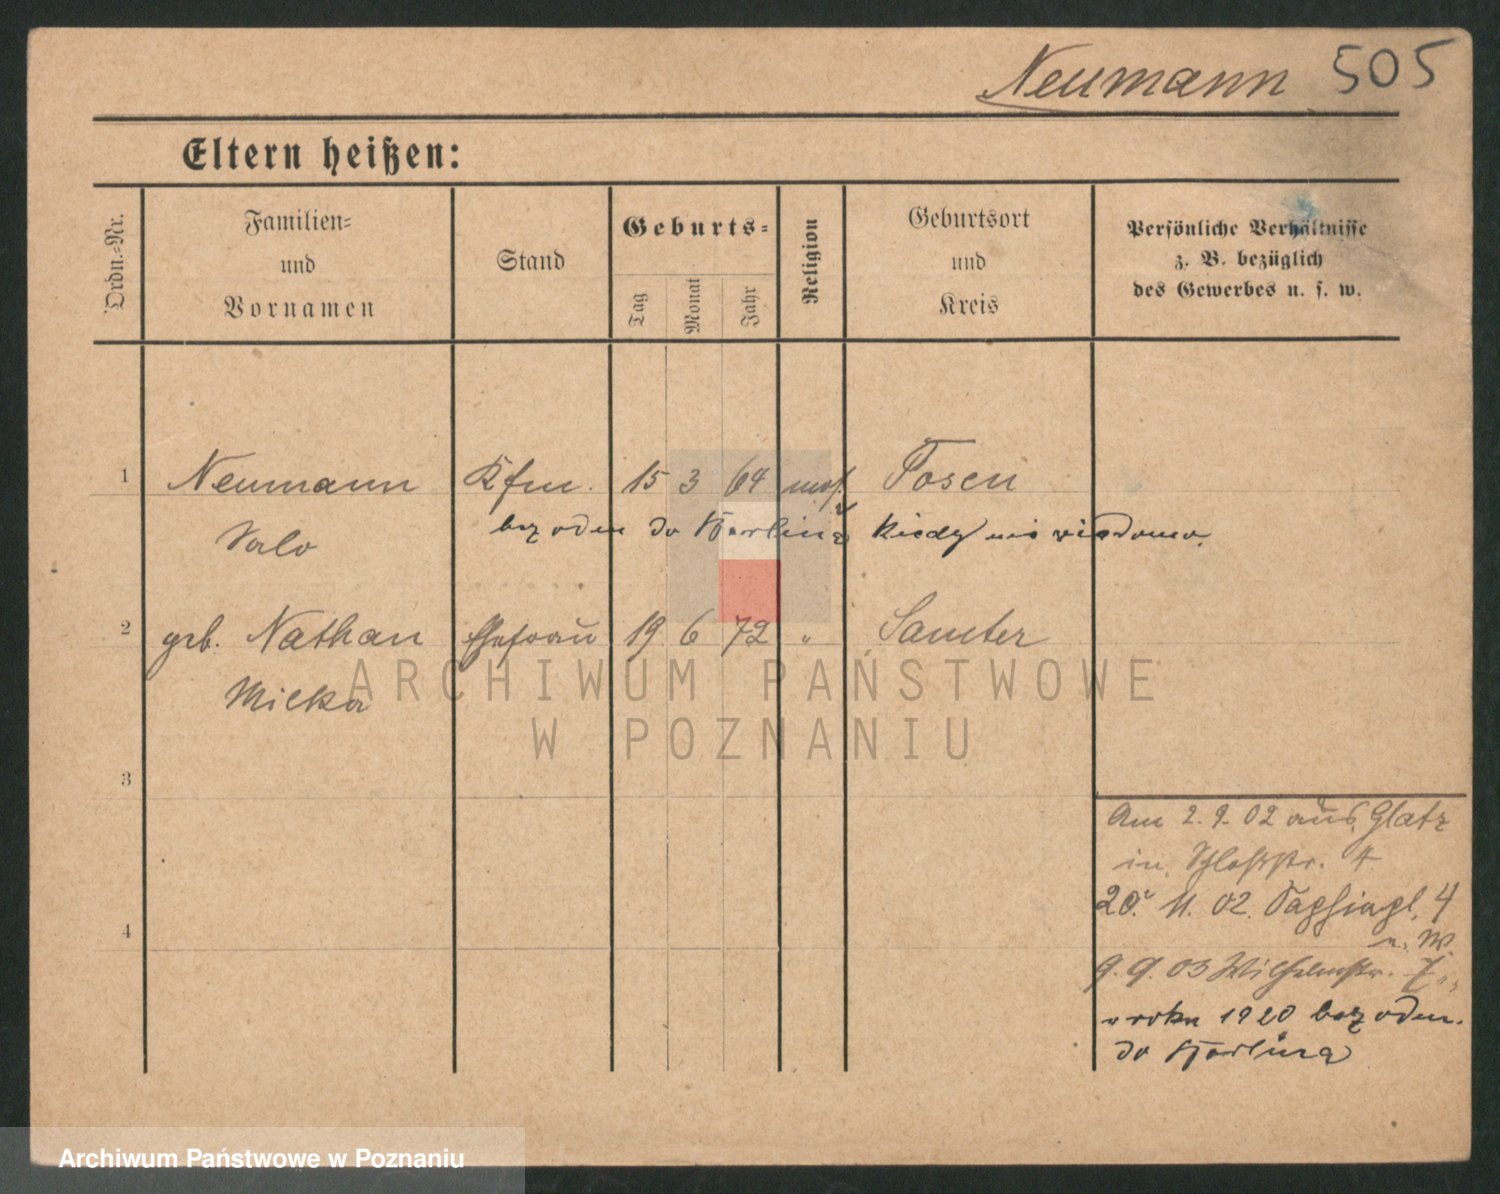 Neumann 505
Eltern heißen:
Ordn.-Nr.
Familien-
und
Vornamen
Stand
Geburts-
Tag
Monat
Jahr
Religion
Geburtsort
und
Kreis
Persönliche Verhältnisse
z. B. bezüglich
des Gewerbes u. s. w.
1 Neumann Kfm. 15 3 64 mos. Posen
Salo
bez odm do Berlina Kiedy nie wiadomo.
2 geb. Nathan Ehefrau 19 6 72 " Samter
Milka
ARCHIWUM PAŃSTWOWE
W POZNANIU
3
4
Am 2. 9. 02 aus Glatz
in Schloßstr. 4
20. 11. 02. Sapiehapl. 4
n. W.
9. 9. 03 Wilhelmstr. 7
w roku 1920 bez odm.
do Berlina
Archiwum Państwowe w Poznaniu